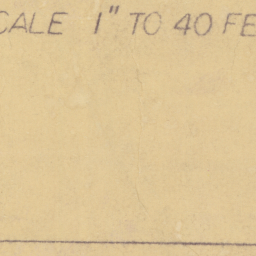 CALE 1" TO 40 FE